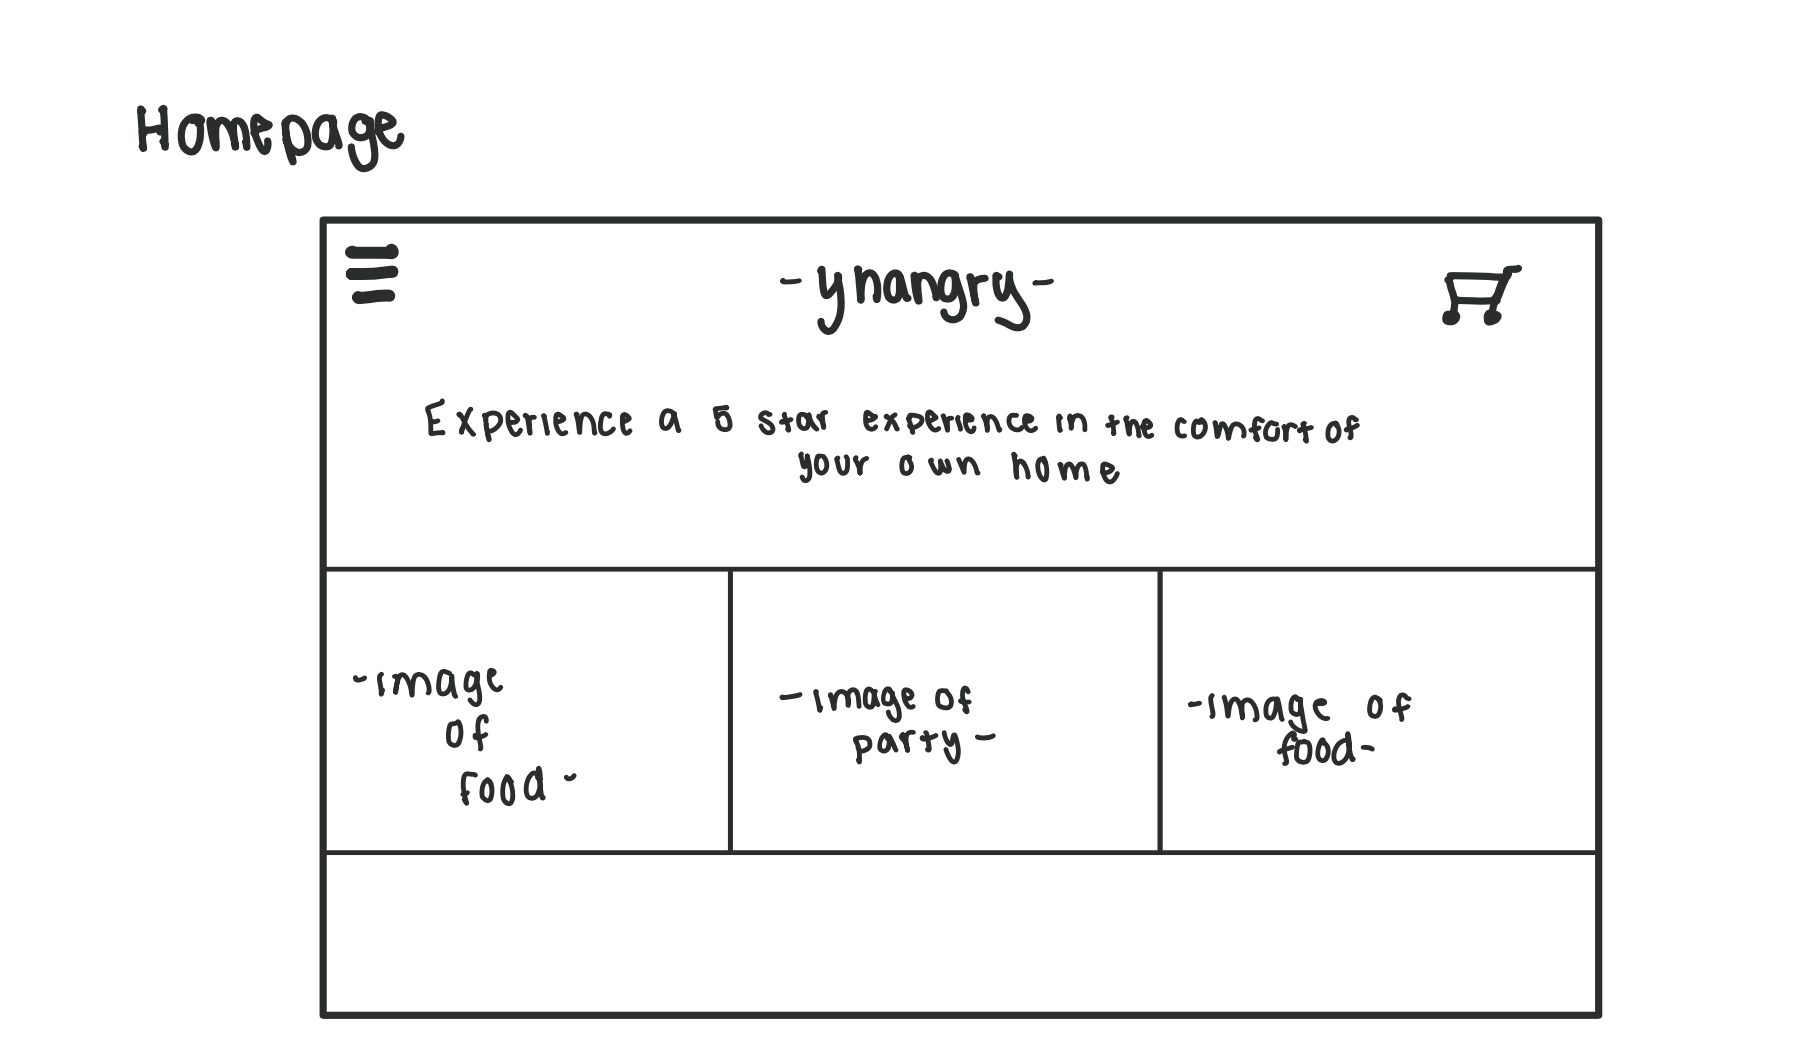 Homepage
- yhangry -
Experience a 5 star experience in the comfort of
your own home
- image
of
food -
- image of
party -
- image of
food -